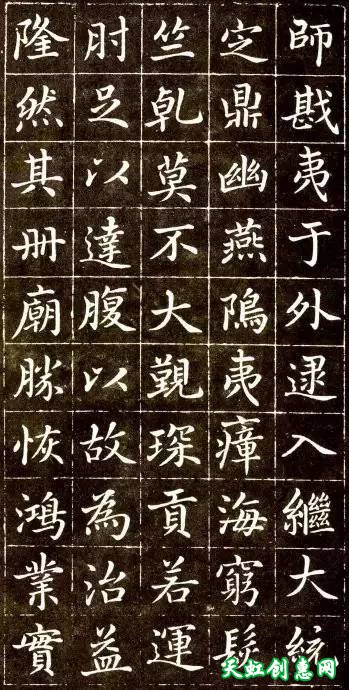 師戡夷于外逮入繼大統
定鼎幽燕隝夷瘴海窮髮
竺乹莫不大覲琛貢若運
肘足以達腹以故為治益
隆然其冊廟勝恢鴻業實
天虹创意网